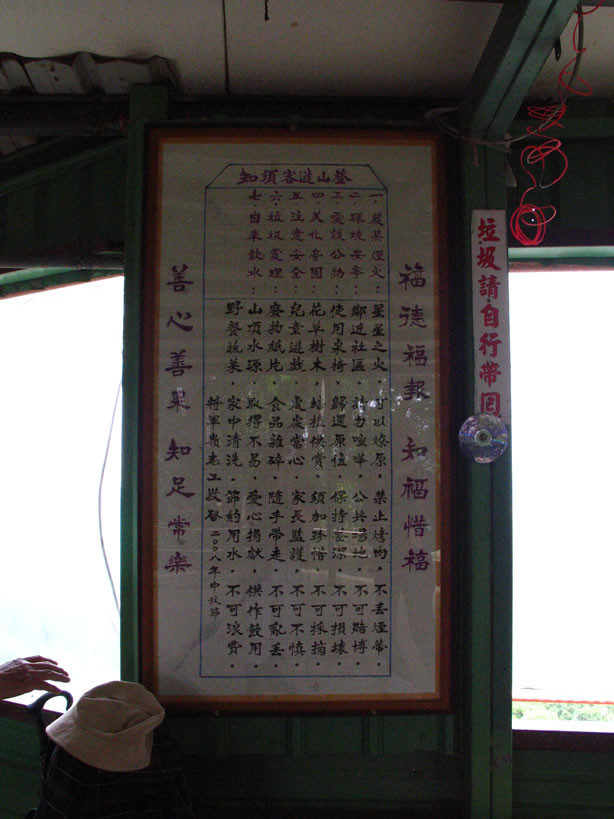 登山遊客須知
福德福報 知福惜福
一．嚴禁煙火．
二．環境安寧．
三．愛護公物．
四．美化亭園．
五．注意安全．
六．垃圾處理．
七．自來飲水．
星星之火．可以燎原．禁止烤肉．不丟煙蒂．
鄰近社區．請勿喧嘩．公共場地．不可賭博．
使用桌椅．歸還原位．保持整潔．不可損壞．
花草樹木．供賞．須加珍惜．不可採摘．
兒童遊戲．處處當心．家長監護．不可不慎．
廢物紙片．食品雜碎．隨手帶走．不可亂丟．
山頂水源．取得不易．愛心捐獻．供作飲用
野餐蔬菜．家中清洗．節約用水．不可浪費．
將軍貴老工敬啓 二00八年中秋節
善心善果 知足常樂
垃圾請自行帶回